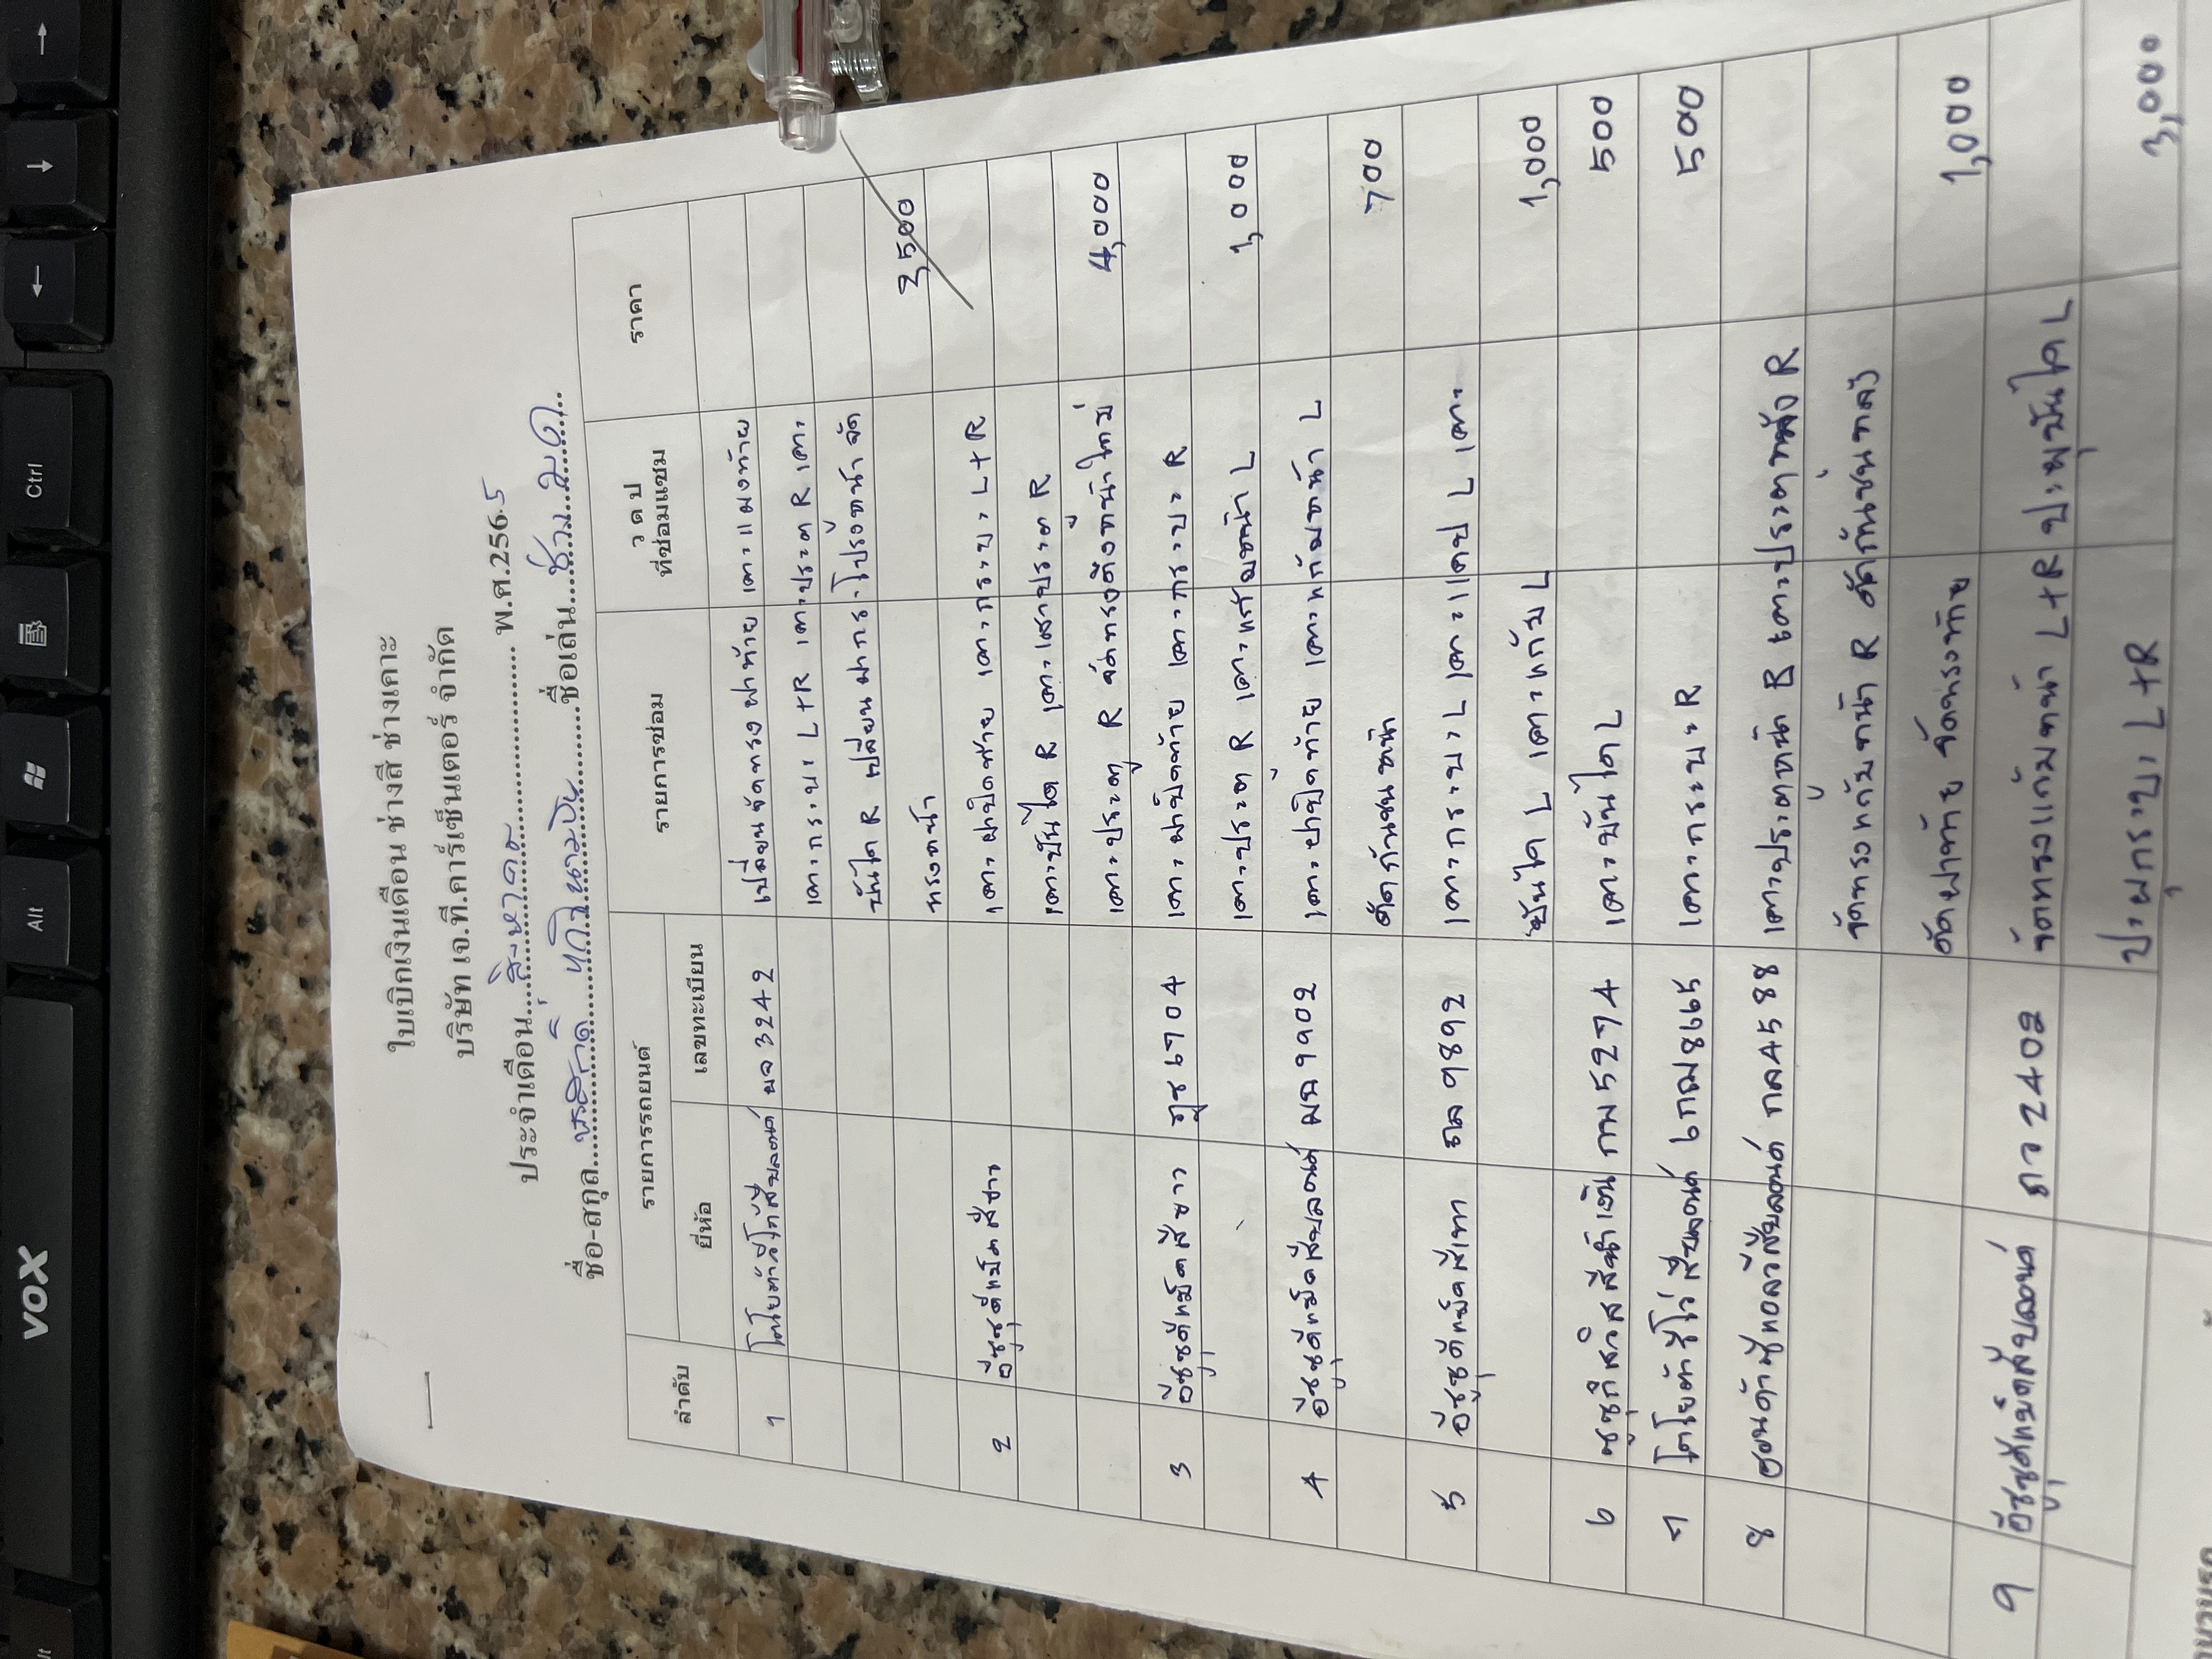 ใบเบิกเงินเดือน ช่างสี ช่างเคาะ
บริษัท เจ.ที.คาร์เซ็นเตอร์ จำกัด
ประจำเดือน สิงหาคม พ.ศ.2565
ชื่อ-สกุล ชื่อเล่น ช่างมด
ลำดับ รายการรถยนต์ รายการซ่อม ว ด ป ที่ซ่อมแซม ราคา
ยี่ห้อ เลขทะเบียน
1 3242 เปลี่ยนจัดทรงฝาท้าย เคาะแผงท้าย
เคาะกระบะ L+R เคาะประตู R เคาะ
บันได R เปลี่ยนฝากระโปรงหน้า จัด
ทรงหน้า 3,500
2 อีซูซุดีแม็คสีขาว เคาะฝาปิดท้าย เคาะกระบะ L+R
เคาะบันได R เคาะเสาประตู R
เคาะประตู R จัดทรงคิ้วหน้าใหม่ 4,000
3 อีซูซุดีแม็คสีขาว 6704 เคาะฝาปิดท้าย เคาะกระบะ R
เคาะประตู R เคาะแก้มหน้า L 1,000
4 อีซูซุดีแม็คสีบลอนด์ 9902 เคาะฝาปิดท้าย เคาะแก้มหน้า L
ดัดกันชนหน้า 700
5 อีซูซุดีแม็คสีเทา 9892 เคาะกระบะ L เคาะแคป L เคาะ
บันได L เคาะแก้ม L 1,000
6 ซูซุกิสวิสสีน้ำเงิน กท 5274 เคาะบันได L 500
7 โตโยต้ารีโว่สีบลอนด์ 6กฌ 8665 เคาะกระบะ R 500
8 ฮอนด้าซีทอลวีสีบลอนด์ กล 4588 เคาะประตูหน้า R เคาะประตูหลัง R
จัดทรงแก้มหน้า R ดัดกันชนหลัง
ดัดฝาท้าย จัดทรงท้าย 1,000
9 อีซูซุดีแม็คสีบลอนด์ 2402 จัดทรงแก้มหน้า L+R ปะผุบันได L
ปะผุกระบะ L+R 3,000
VOX
Alt
Ctrl